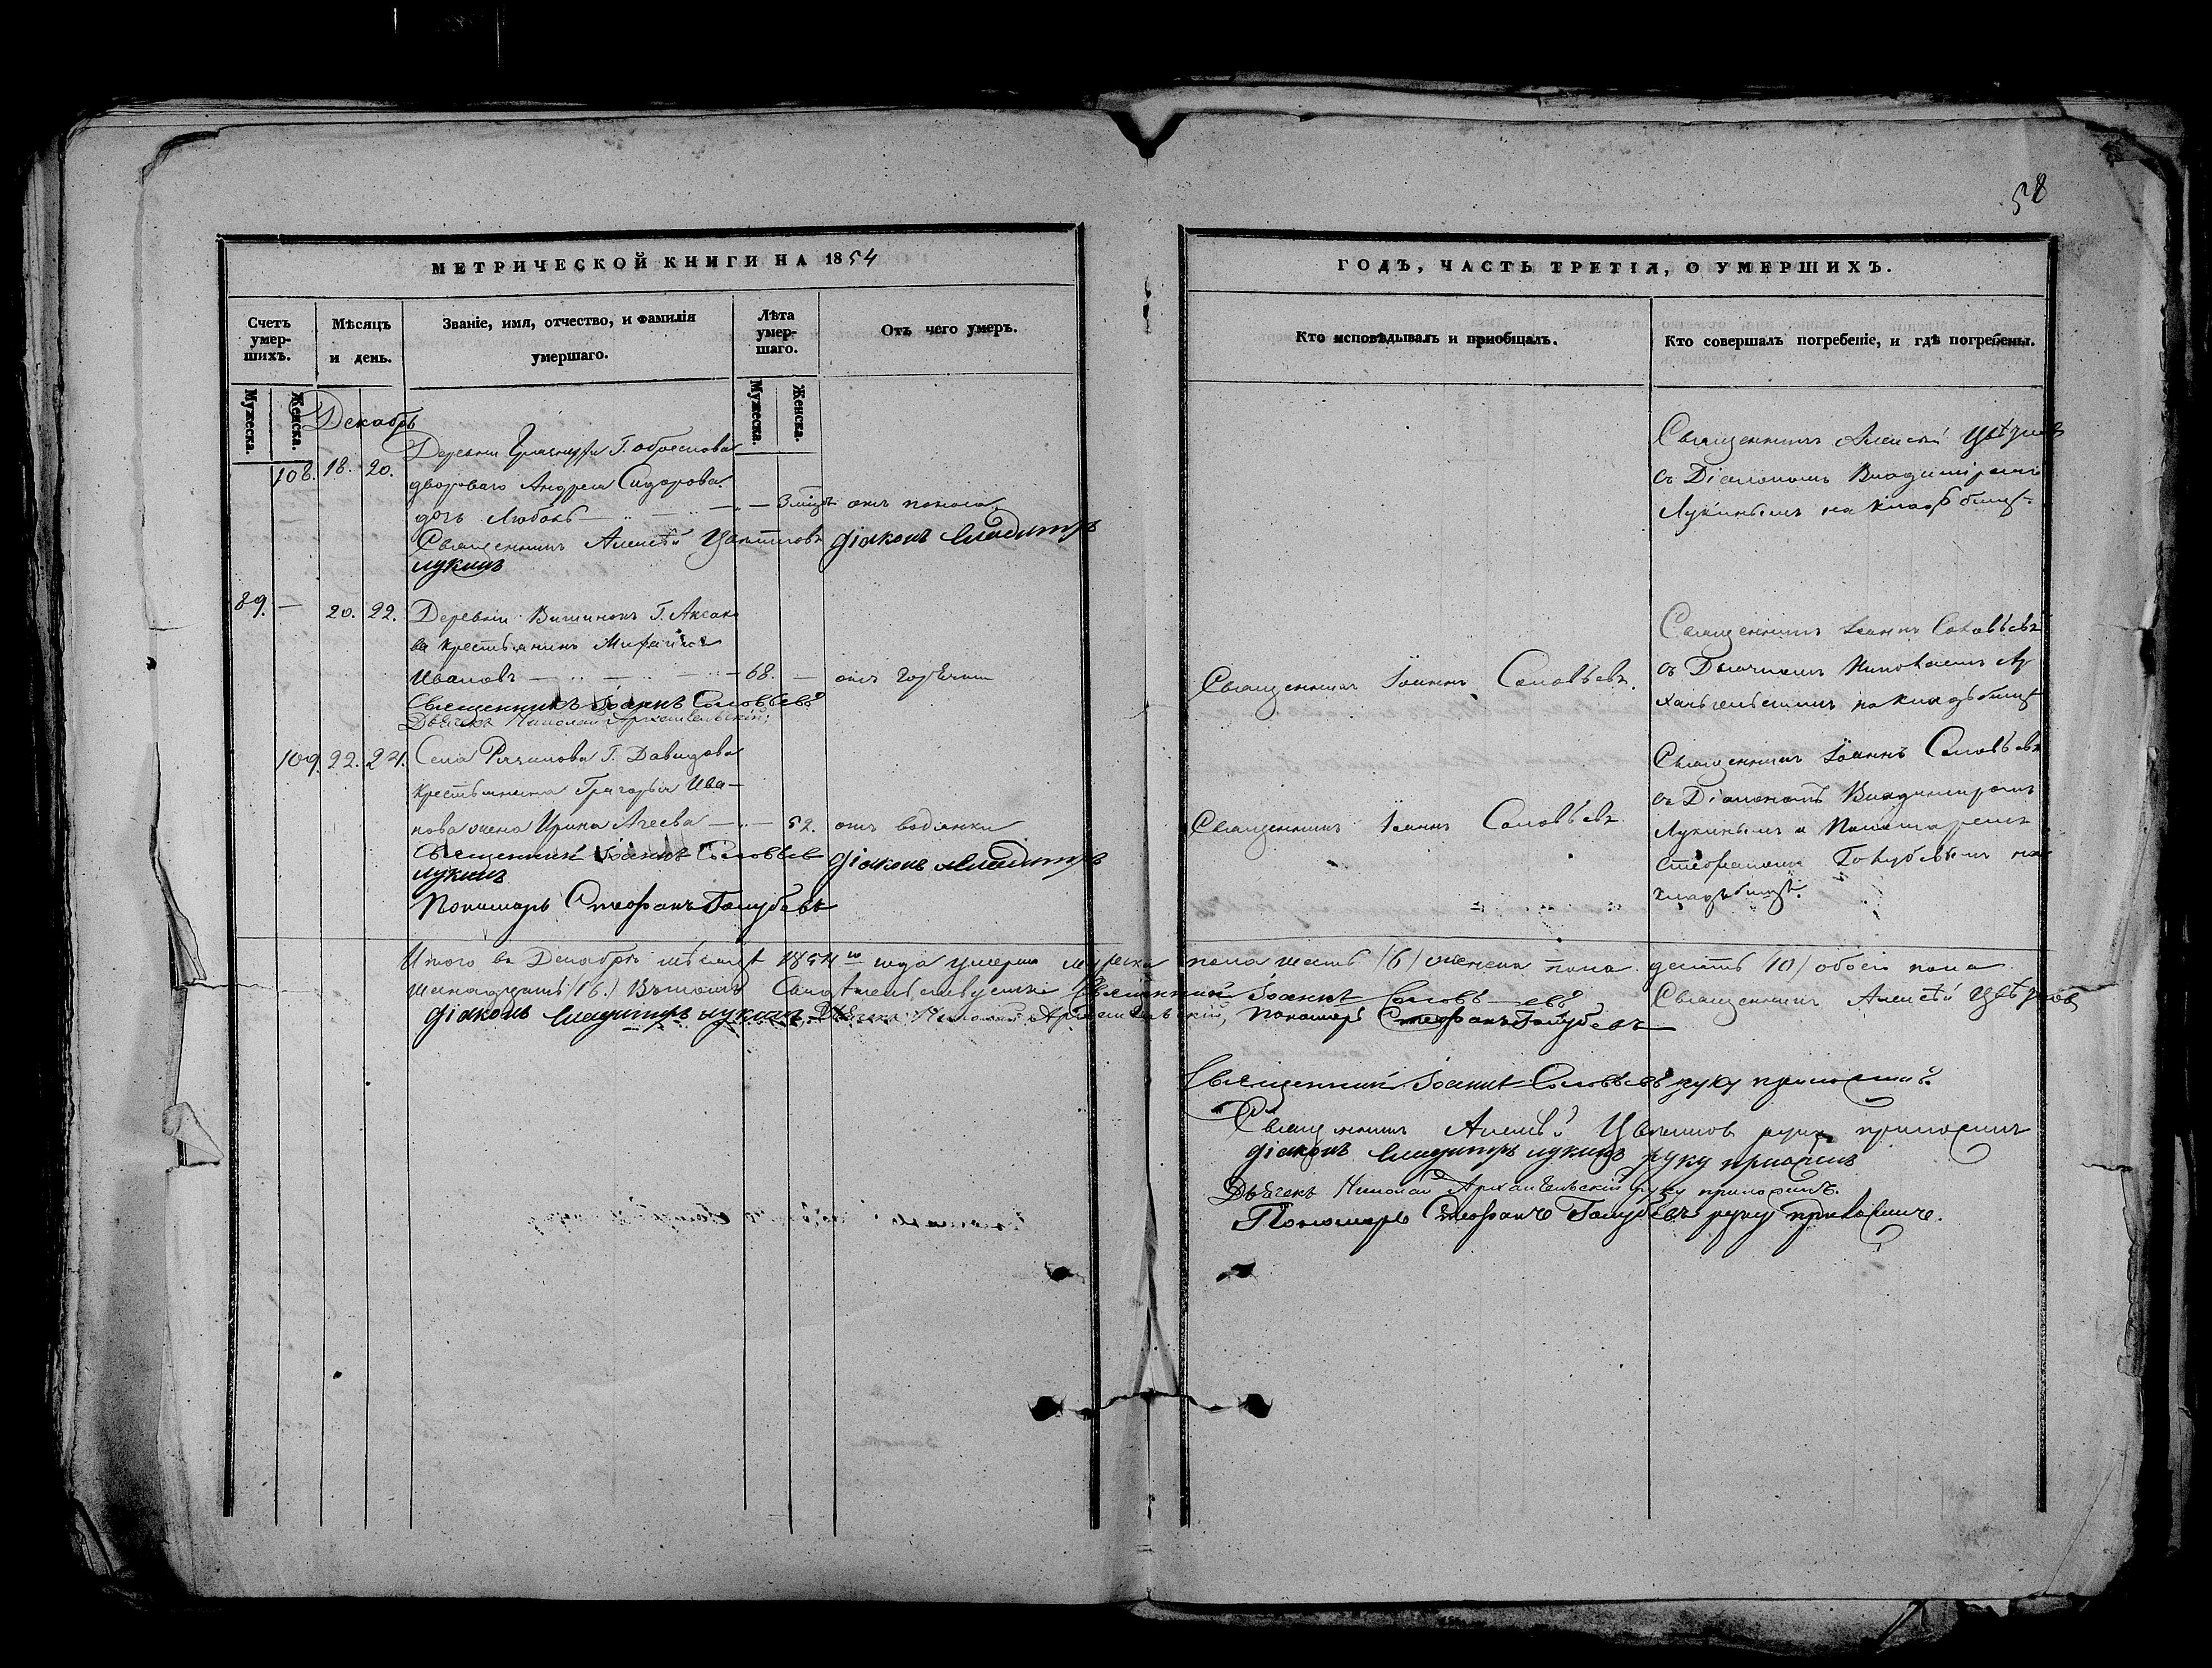 58
МЕТРИЧЕСКОЙ КНИГИ НА 1854
Счетъ умер-шихъ.
Мѣсяцъ и день.
Званіе, имя, отчество, и фамилія умершаго.
Лѣта умер-шаго.
Отъ чего умеръ.
Мужеска.
Женска.
Мужеска.
Женска.
Декабрь
Деревни Г.
108. 18. 20. двороваго Андрея Сидорова
дочь Любовь — 3 отъ поноса
Священникъ Алексѣй Цвѣтковъ діаконъ Владимиръ
Лукинъ
89. — 20. 22. Деревни Г. Аксако
ва крестьянинъ
Ивановъ — 68. — отъ горячки
Священникъ Іоаннъ Соловьевъ
Дьячекъ Николай Архангельскій
109. 22. 24. Села Г. Давыдова
крестьянина Григорья Ива-
нова жена Ирина Агеева — 52. отъ водянки
Священникъ Іоаннъ Соловьев діаконъ Владимиръ
Лукинъ
Пономарь Стефанъ Голубевъ
ГОДЪ, ЧАСТЬ ТРЕТІЯ, О УМЕРШИХЪ.
Кто исповѣдывалъ и пріобщалъ.
Кто совершалъ погребеніе, и гдѣ погребены.
Священникъ Алексѣй Цвѣтков
съ Діакономъ Владиміромъ
Лукинымъ на кладбищѣ
Священникъ Іоаннъ Соловьевъ
съ Дьячкомъ Николаемъ Ар
Священникъ Іоаннъ Соловьевъ.
хангельскимъ на кладбищѣ
Священникъ Іоаннъ Соловьевъ
съ Діакономъ Владимиромъ
Священникъ Іоаннъ Соловьевъ
Лукинымъ и Пономаремъ
Стефаномъ Голубевымъ на
кладбищѣ.
Итого въ Декабрѣ мѣсяцѣ 1854го года умерло мужеска пола шесть (6) женска пола десять 10) обоего пола
шенадцать 16.) Въ томъ Свидѣтельствуемъ Священникъ Іоаннъ Соловьевъ, Священникъ Алексѣй Цвѣтков,
діаконъ Владимиръ Лукинъ Дьячекъ Николай Архангельскій, Пономарь Стефанъ Голубевъ
Священникъ Іоаннъ Соловьевъ руку приложилъ.
Священникъ Алексѣй Цвѣтковъ руку приложилъ
діаконъ Владимиръ Лукинъ руку приложилъ
Дьячекъ Николай Архангельскій руку приложилъ.
Пономарь Стефанъ Голубевъ руку приложилъ.